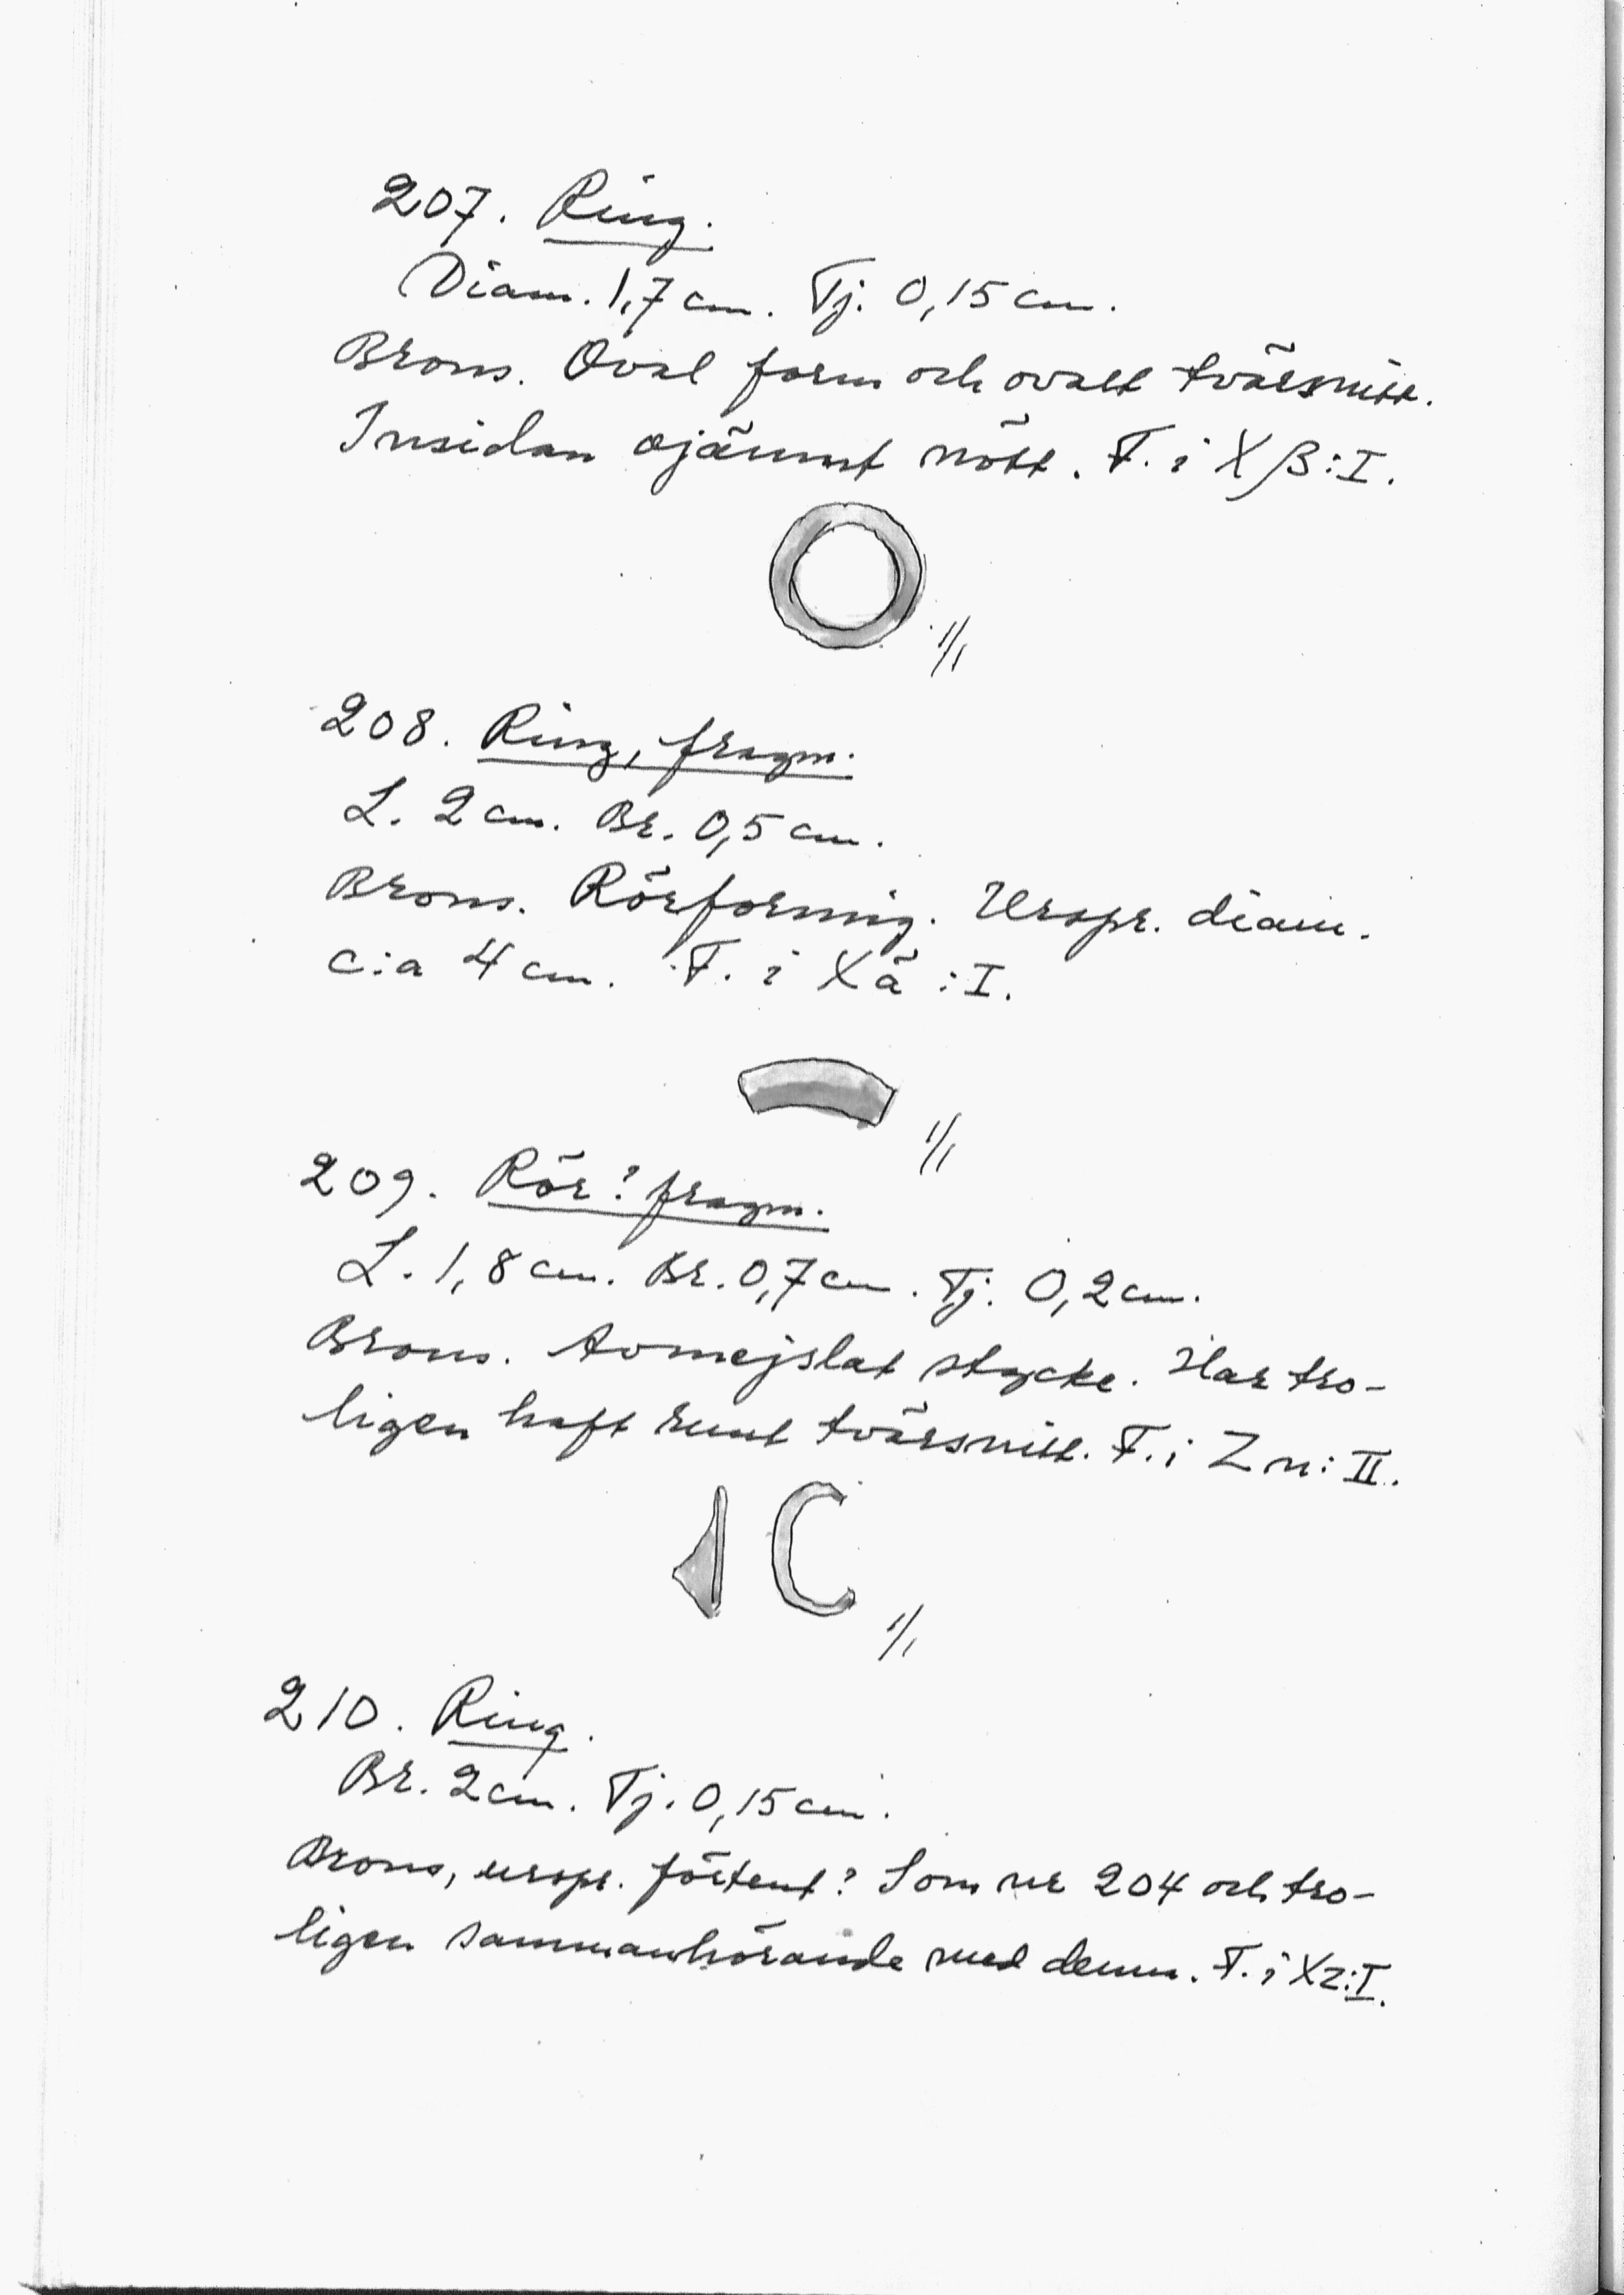 207. Ring.
Diam. 1,7 cm. Tj. 0,15 cm.
Brons. Oval form och ovalt tvärsnitt.
Insidan ojämnt nött. F. i X β:I.
1/1
208. Ring, fragm.
L. 2 cm. Br. 0,5 cm.
Brons. Rörformig. Urspr. diam.
c:a 4 cm. F. i X ä :I.
1/1
209. Rör? fragm.
L. 1,8 cm. Br. 0,7 cm. Tj. 0,2 cm.
Brons. Avmejslat stycke. Har tro-
ligen haft runt tvärsnitt. F. i Z n: II.
1/1
210. Ring.
Br. 2 cm. Tj. 0,15 cm.
Brons, urspr. förtent? Som nr 204 och tro-
ligen sammanhörande med denna. F. i X z:I.